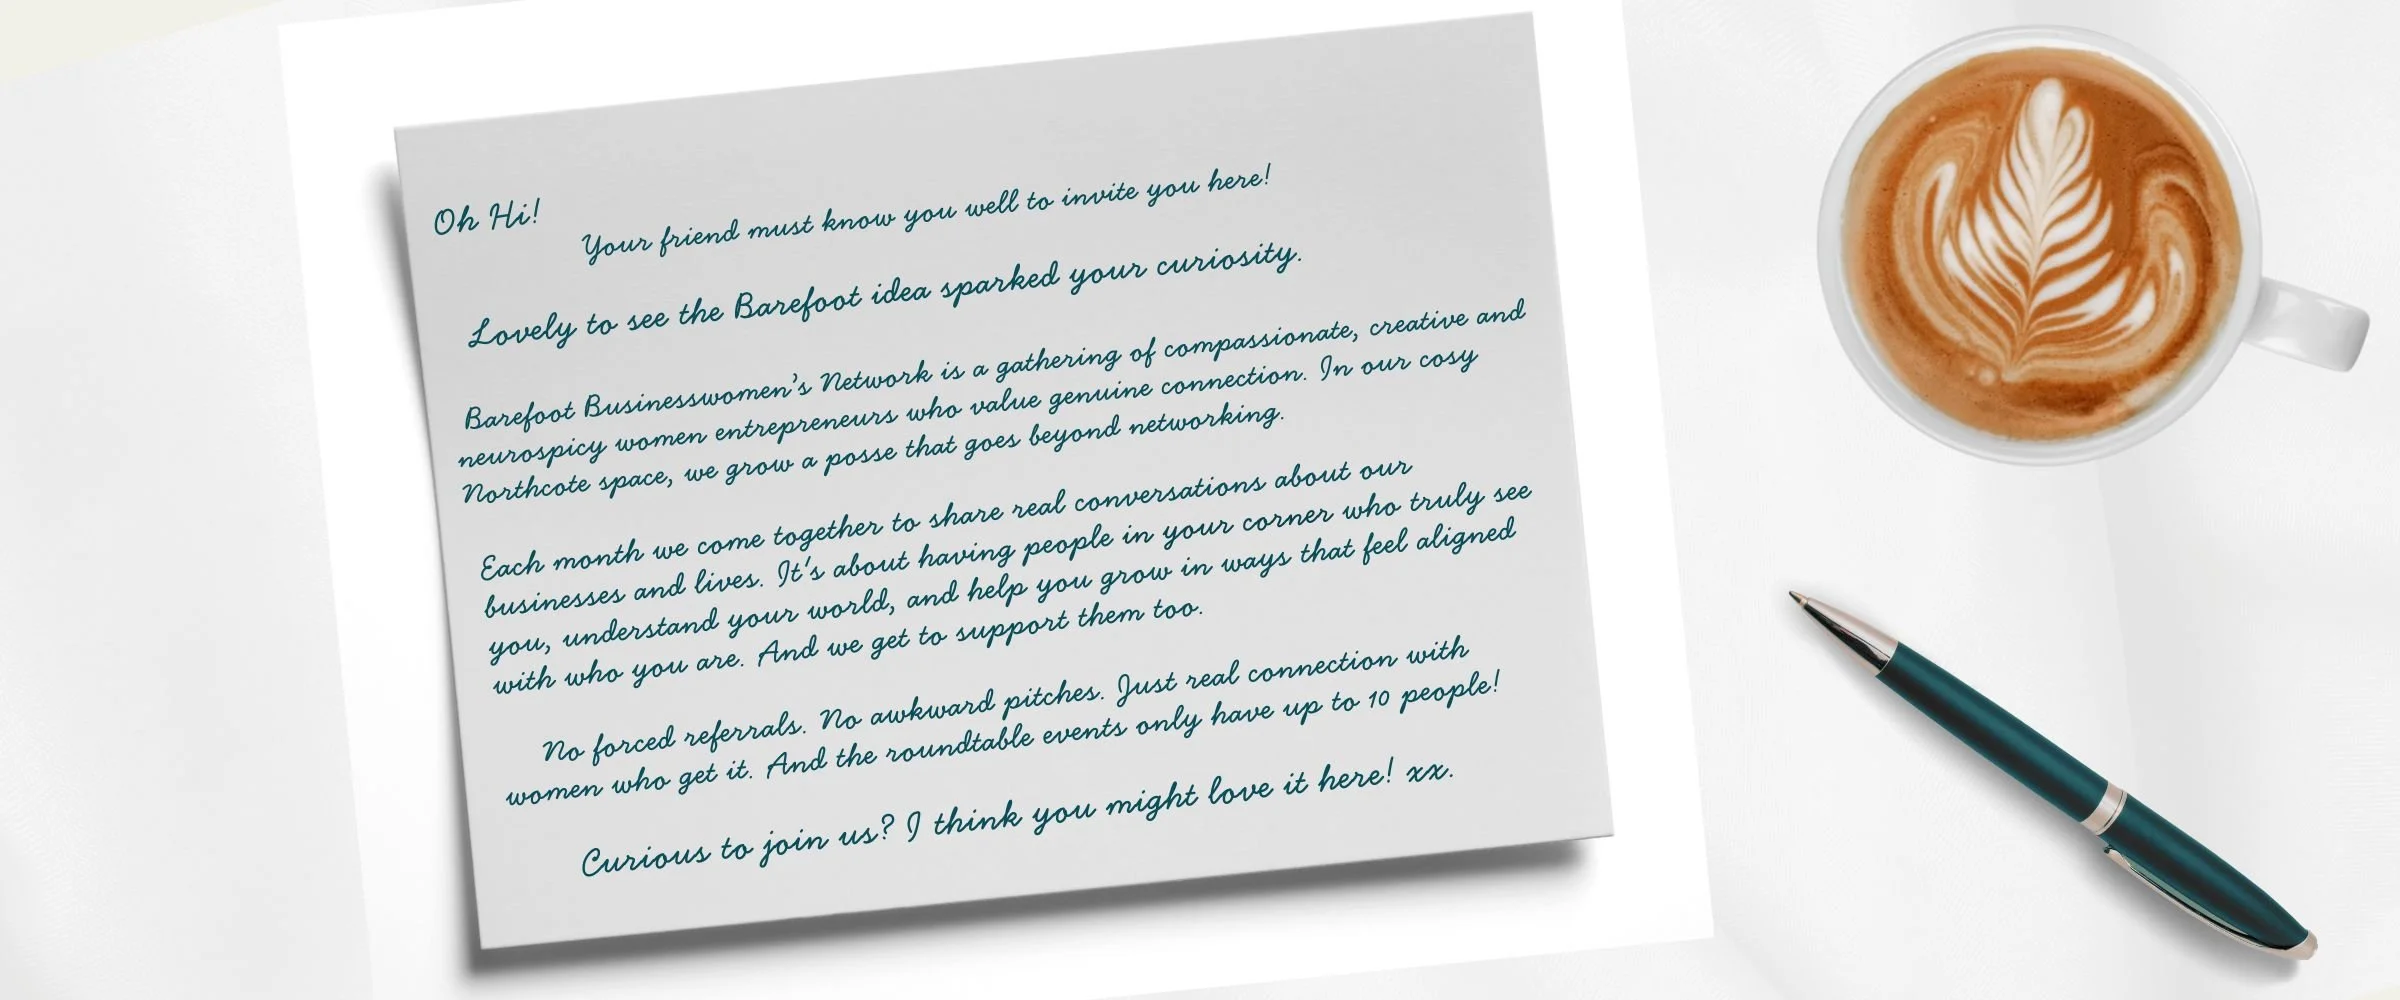 Oh Hi!
Your friend must know you well to invite you here!
Lovely to see the Barefoot idea sparked your curiosity.
Barefoot Businesswomen's Network is a gathering of compassionate, creative and
neurospicy women entrepreneurs who value genuine connection. In our cosy
Northcote space, we grow a posse that goes beyond networking.
Each month we come together to share real conversations about our
businesses and lives. It's about having people in your corner who truly see
you, understand your world, and help you grow in ways that feel aligned
with who you are. And we get to support them too.
No forced referrals. No awkward pitches. Just real connection with
women who get it. And the roundtable events only have up to 10 people!
Curious to join us? I think you might love it here! xx.